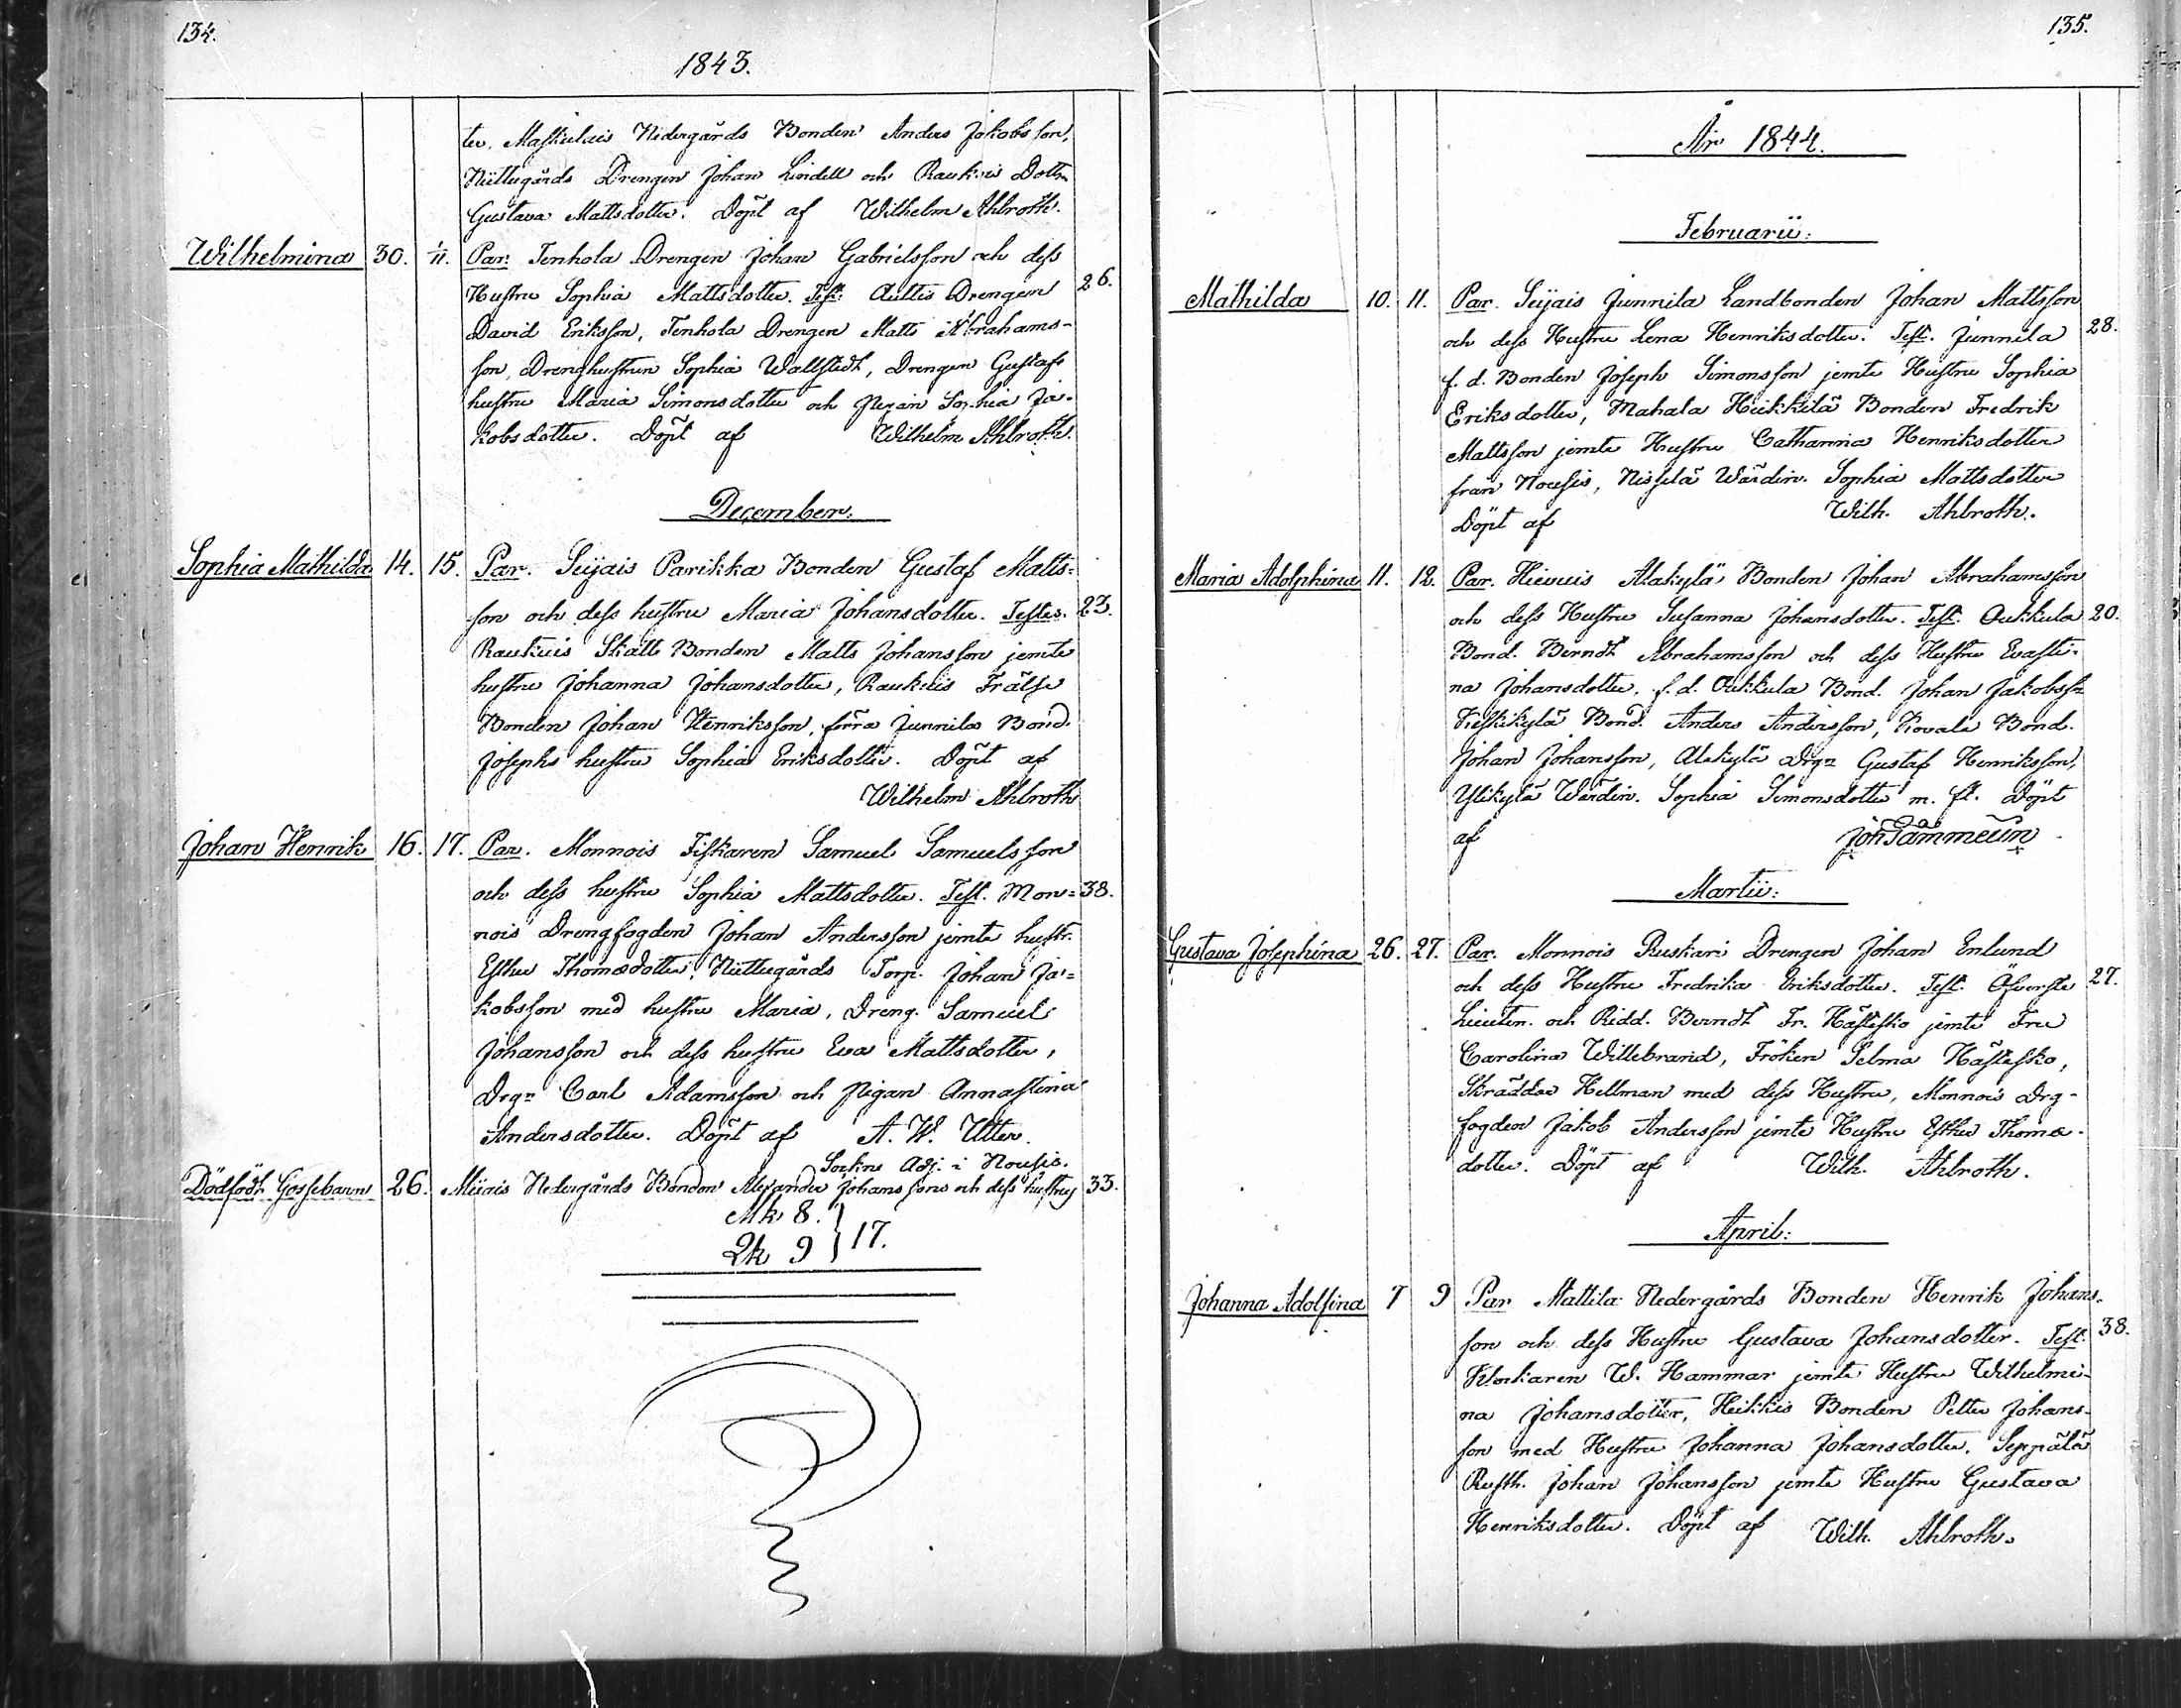 134.
1843.
ter, Maskulais Nedergårds Bonden Anders Jakobsson,
Niittugårds Drengen Johan Lindell och Raukuis Dottr.
Gustava Mattsdotter. Döpt af Wilhelm Ahlroth.
Wilhelmina 30. 1/11. Par. Tenhola Drengen Johan Gabrielsson och dess
Hustru Sophia Mattsdotter. Test: Aultis Drengen 26.
David Eriksson, Tenhola Drengen Matts Abrahams-
son, Drenghustrun Sophia Wallstedt, Drengen Gustafs
hustru Maria Simonsdotter och Pigan Sophia Ja-
kobsdotter. Döpt af Wilhelm Ahlroth.
December:
Sophia Mathilda 14. 15. Par. Sujais Parikka Bonden Gustaf Matts-
son och dess hustru Maria Johansdotter. Testes. 23.
Raukuis Skatt Bonden Matts Johansson jemte
hustru Johanna Johansdotter, Raukuis Frälse
Bonden Johan Henriksson, förra Junnila Bond.
Josephs hustru Sophia Eriksdotter. Döpt af
Wilhelm Ahlroth
Johan Henrik 16. 17. Par. Monnois Fiskaren Samuel Samuelsson
och dess hustru Sophia Mattsdotter. Test. Mon- 38.
nois Drengfogden Johan Andersson jemte hustr.
Esther Thomædotter, Niittugårds Torp. Johan Ja-
kobsson med hustru Maria, Dreng. Samuel
Johansson och dess hustru Eva Mattsdotter,
Drgn Carl Adamsson och Pigan Annastina
Andersdotter. Döpt af A. W. Utter.
Sockne Adj. i Nousis.
Dödfödt Gossebarn 26. Miiais Nedergårds Bonden Alexander Johanssons och dess hustrus 33.
Mk 8.
Qk 9 } 17.
135.
År 1844.
Februarii:
Mathilda 10. 11. Par. Sujais Junnila Landbonden Johan Mattsson
och dess Hustru Lena Henriksdotter. Test. Junnila 28.
f. d. Bonden Joseph Simonsson jemte Hustru Sophia
Eriksdotter, Mahala Heikkilä Bonden Fredrik
Mattsson jemte Hustru Catharina Henriksdotter
från Nousis, Nissilä Wärdin. Sophia Mattsdotter
Döpt af Wilh. Ahlroth.
Maria Adolphina 11. 12. Par. Hievuis Alakylä Bonden Johan Abrahamsson
och dess Hustru Susanna Johansdotter. Test. Aukkula 20.
Bond. Berndt Abrahamsson och dess Hustru Evasti-
na Johansdotter. f. d. Aukkula Bond. Johan Jakobss.
Keskikylä Bond. Anders Andersson, Kovala Bond.
Johan Johansson, Alakylä Drgn Gustaf Henriksson,
Ylikylä Wärdin. Sophia Simonsdotter m. fl. Döpt
af Joh Tammelin
Martii:
Gustava Josephina 26. 27. Par. Monnois Ruskari Drengen Johan Enlund
och dess Hustru Fredrika Eriksdotter. Test. Öfverste 27.
Lieuten. och Ridd. Berndt Fr. Hästesko jemte Fru
Carolina Willebrand, Fröken Selma Hästesko,
Skräddar Hellman med dess Hustru, Monnois Drg-
fogden Jakob Andersson jemte Hustru Esther Thomæ-
dotter. Döpt af Wilh. Ahlroth.
April:
Johanna Adolfina 7 9 Par Mattila Nedergårds Bonden Henrik Johans-
son och dess Hustru Gustava Johansdotter. Test. 38.
Klockaren W. Hammar jemte Hustru Wilhelmi-
na Johansdotter, Heikkis Bonden Petter Johans-
son med Hustru Johanna Johansdotter. Seppälä
Rusth. Johan Johansson jemte Hustru Gustava
Henriksdotter. Döpt af Wilh. Ahlroth.